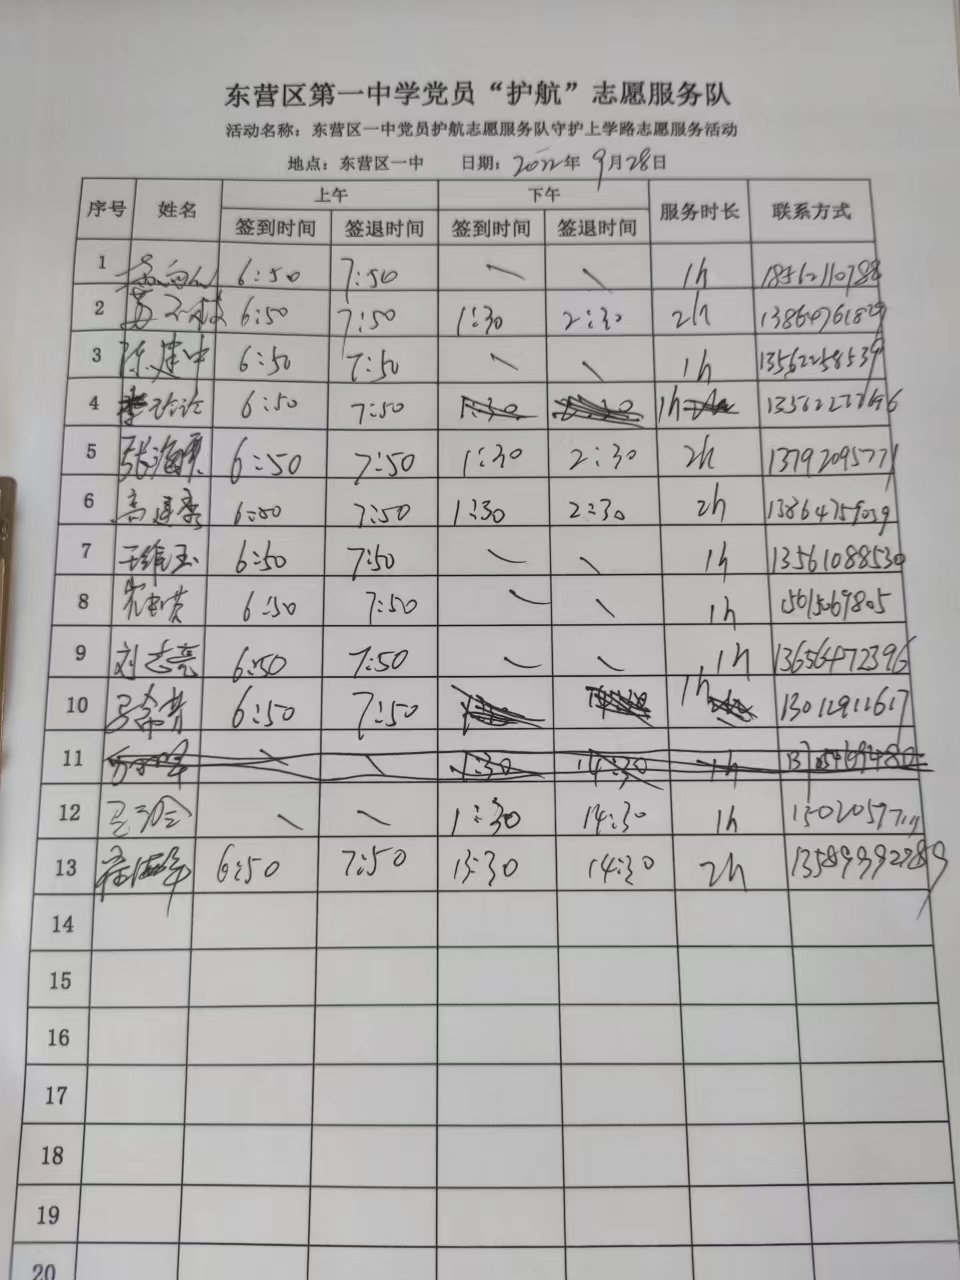 东营区第一中学党员“护航”志愿服务队
活动名称：东营区一中党员护航志愿服务队守护上学路志愿服务活动
地点：东营区一中 日期：2022年9月28日
序号 姓名 上午 下午 服务时长 联系方式
签到时间 签退时间 签到时间 签退时间
1 6:50 7:50 1h 18562110788
2 6:50 7:50 1:30 2:30 2h 13864761829
3 陈建中 6:50 7:50 1h 13562258539
4 6:50 7:50 1h
5 张海 6:50 7:50 1:30 2:30 2h 13792095771
6 高建 6:50 7:50 1:30 2:30 2h 13864759039
7 王维玉 6:50 7:50 1h 13561088530
8 6:50 7:50 1h
9 刘志亮 6:50 7:50 1h 13656472396
10 6:50 7:50 1h 13012911617
11 1:30 14:30 1h
12 1:30 14:30 1h
13 6:50 7:50 13:30 14:30 2h 13589392789
14
15
16
17
18
19
20